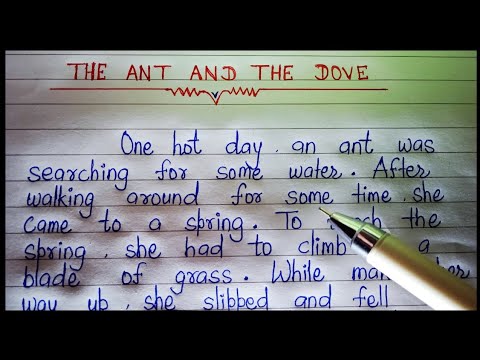 THE ANT AND THE DOVE
One hot day, an ant was
searching for some water. After
walking around for some time, she
came to a spring. To the
spring, she had to climb a
blade of grass. While her
way up, she slipped and fell